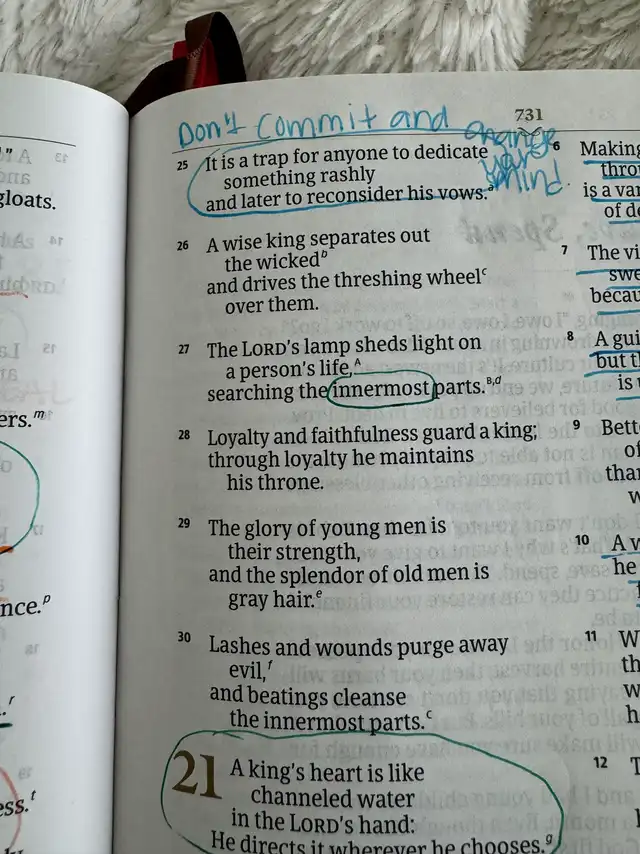 731
Don't commit and change
your
mind.
25 It is a trap for anyone to dedicate
something rashly
and later to reconsider his vows.ᵃ
26 A wise king separates out
the wickedᵇ
and drives the threshing wheelᶜ
over them.
27 The LORD's lamp sheds light on
a person's life,ᴬ
searching the innermost parts.ᴮ,ᵈ
28 Loyalty and faithfulness guard a king;
through loyalty he maintains
his throne.
29 The glory of young men is
their strength,
and the splendor of old men is
gray hair.ᵉ
30 Lashes and wounds purge away
evil,ᶠ
and beatings cleanse
the innermost parts.ᶜ
21 A king's heart is like
channeled water
in the LORD's hand:
He directs it wherever he chooses.ᵍ
6 Making
is a var
of de
7 The vi
swe
becau
8 A gui
but th
is u
9 Bette
of
than
w
10 A w
he
11 W
th
w
h
12 T
gloats.
ers.ᵐ
nce.ᵖ
ess.ᵗ